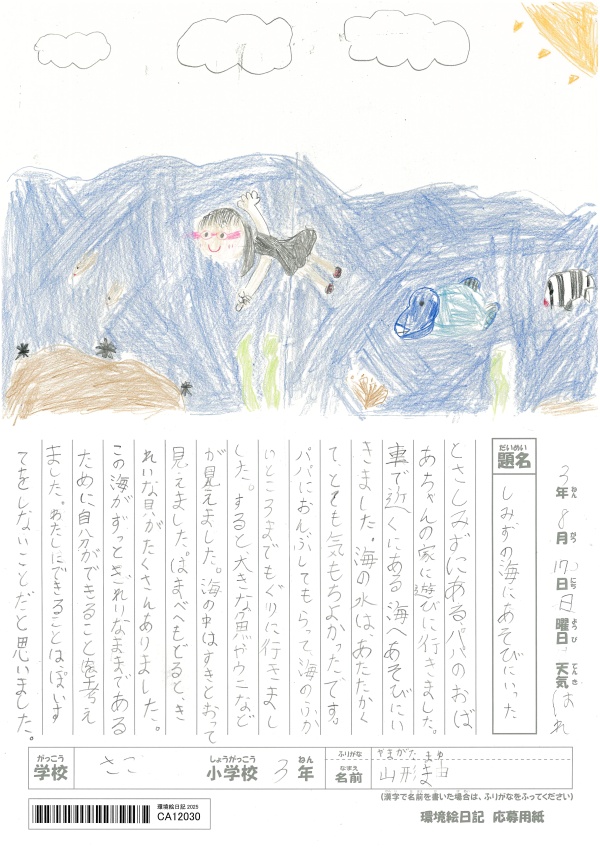 3年 8月 17日 日曜日 天気 はれ
ねん がつ にち ようび てんき
だいめい
題名
しみずの海にあそびにいった
とさしみずにある、パパのおば
あちゃんの家に遊びに行きました。
車で近くにある海へあそびにい
きました。海の水は、あたたかく
て、とても気もちよかったです。
パパにおんぶしてもらって、海のふか
いところまでもぐりに行きまし
した。すると大きな魚やウニなど
が見えました。海の中はすきとおって
見えました。はまべへもどると、き
れいな貝がたくさんありました。
この海がずっときれいなままである
ために自分ができることを考え
ました。わたしにできることはぽいす
てをしないことだと思いました。
がっこう しょうがっこう ねん
学校 さこ 小学校 3年
ふりがな やまがた まゆ
なまえ
名前 山形ま由
(漢字で名前を書いた場合は、ふりがなをふってください)
環境絵日記 2025
CA12030
環境絵日記 応募用紙